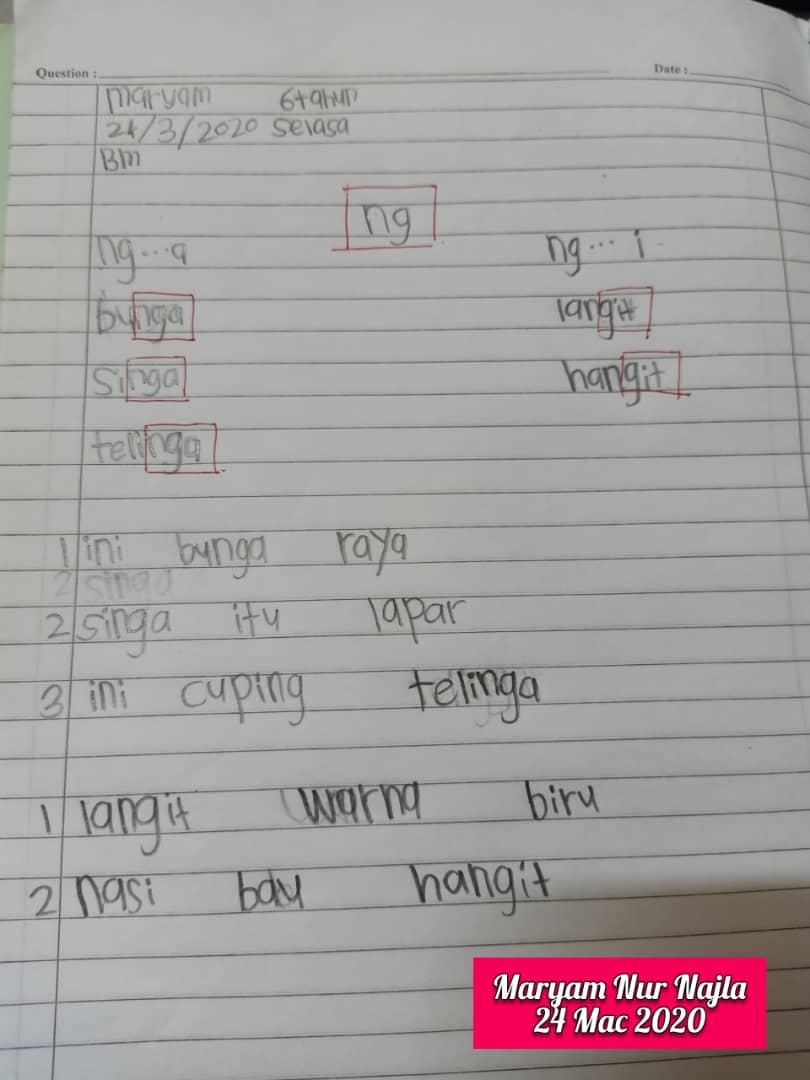 Question : Date :
maryam 6tahun
24/3/2020 selasa
Bm
ng
ng...a ng...i
bunga langit
singa hangit
telinga
1 ini bunga raya
2 singa
2 singa itu lapar
3 ini cuping telinga
1 langit warna biru
2 nasi bau hangit
Maryam Nur Najla
24 Mac 2020